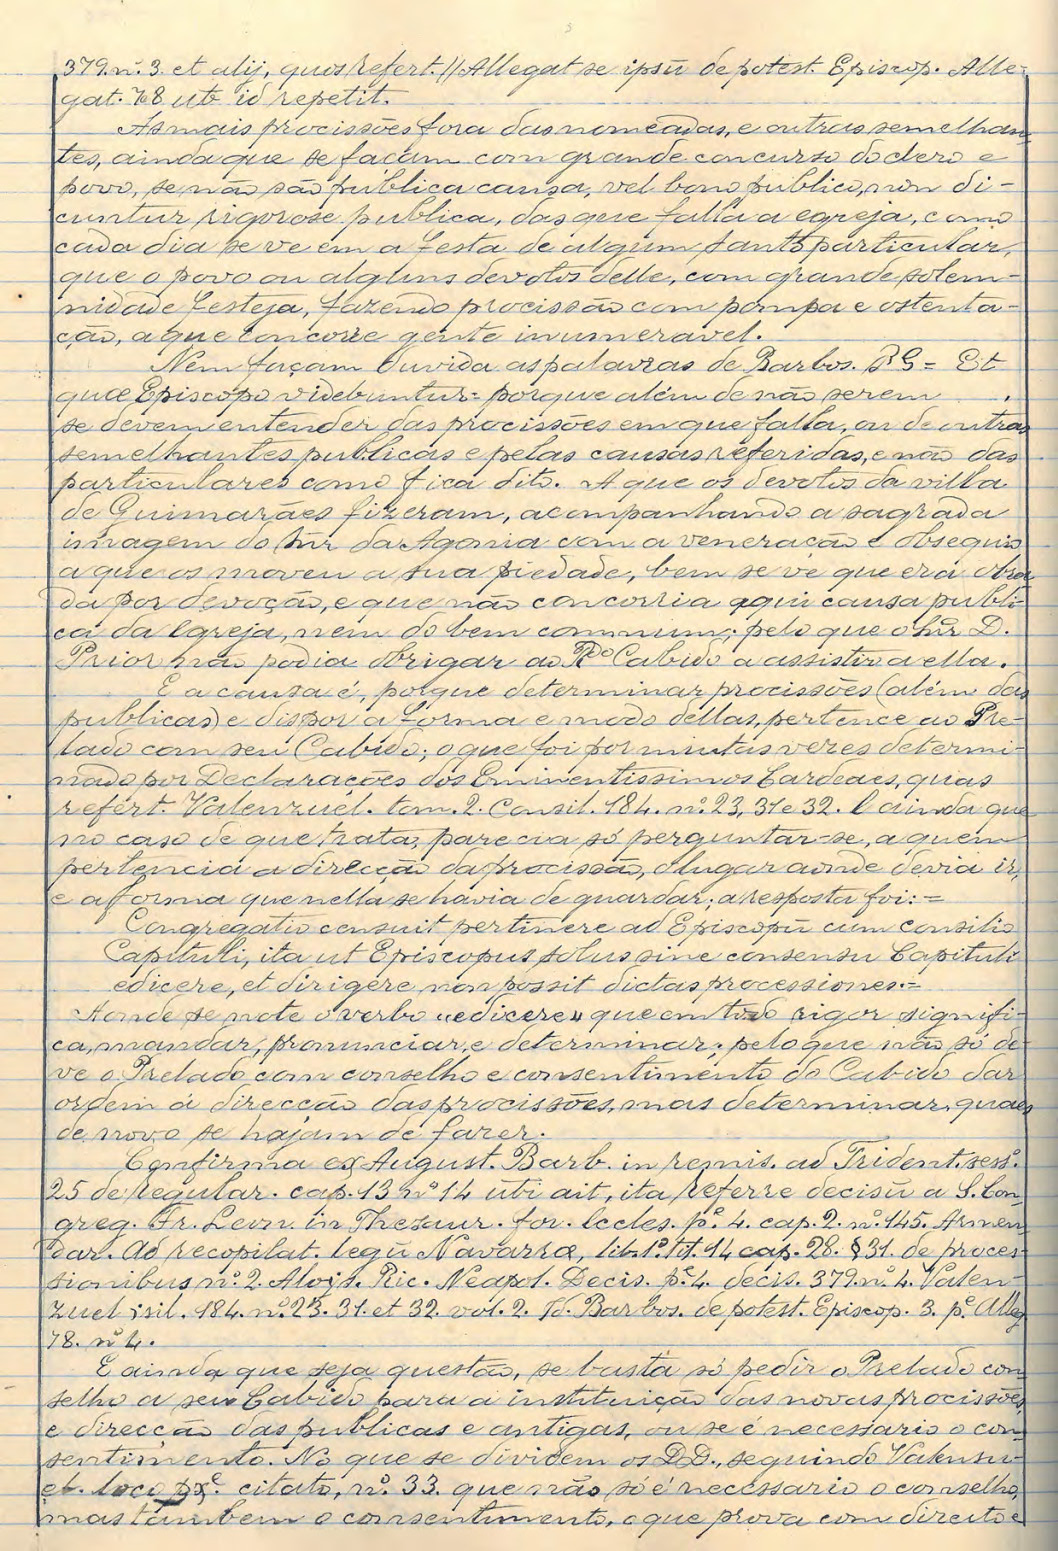 379. nº. 3. et alij, quos refert. // Allegat se ipsũ de potest. Episcop. Alle-
gat. 78 ut id repetit.
As mais procissões fora das nomeadas, e outras semelhan-
tes, ainda que se façam com grande concurso do clero e
povo, se não são publica causa, vel bono publico, non di-
cuntur rigorose publica, das que falla a egreja, como
cada dia se ve em a festa de algum santo particular,
que o povo ou alguns devotos delle, com grande solem-
nidade festeja, fazendo procissão com pompa e ostenta-
ção, a que concorre gente innumeravel.
Nem façam duvida as palavras de Barbos. = Et
quæ Episcopo videbuntur = porque além de não serem
se devem entender das procissões em que falla, ou de outras
semelhantes publicas e pelas causas referidas, e não das
particulares como fica dito. A que os devotos da villa
de Guimarães fizeram, acompanhando a sagrada
imagem do Snr da Agonia com a veneração e obsequio
a que os moveu a sua piedade, bem se ve que era obra-
da por devoção, e que não concorria aqui causa publi-
ca da Egreja, nem do bem commum; pelo que o Snr D.
Prior não podia obrigar ao Rdo Cabido a assistir a ella.
E a causa é, porque determinar procissões (além das
publicas) e dispor a forma e modo dellas, pertence ao Pre-
lado com seu Cabido; o que foi por muitas vezes determi-
nado por Declarações dos Eminentissimos Cardeaes, quas
refert. Valenzuel. tom. 2. Consil. 184. nº. 23, 31 e 32. E ainda que
no caso de que trata, parecia só perguntar-se, a quem
pertencia a direcção da procissão, o lugar aonde devia ir,
e a forma que nella se havia de guardar; a resposta foi: =
Congregatio censuit pertinere ad Episcopũ cum consilio
Capituli, ita ut Episcopus solus sine consensu Capituli
edicere, et dirigere non possit dictas processiones. =
Aonde se note o verbo "edicere" que em todo rigor signifi-
ca, mandar, pronunciar, e determinar; pelo que não só de-
ve o Prelado com conselho e consentimento do Cabido dar
ordem á direcção das procissões, mas determinar, quaes
de novo se hajam de fazer.
Confirma ex August. Barb. in remis. ad Trident. sess.
25 de regular. cap. 13 nº 14 ubi ait, ita referre decisũ a S. Con-
greg. Fr. Leon. in Thesaur. for. Eccles. pe. 4. cap. 2. nº. 145. Armen-
dar. Ad recopilat. legũ Navarræ, lib. 1º. tit. 14 cap. 28. § 31. de proces-
sionibus nº. 2. Aloys. Ric. Neapol. Decis. pe. 4. decis. 379. nº. 4. Valen-
zuel sil. 184. nº. 23. 31. et 32. vol. 2. Id. Barbos. de potest. Episcop. 3. pe. Alleg.
78. nº 4.
E ainda que seja questão, se basta só pedir o Prelado con-
selho a seu Cabido para a instituição das novas procissões,
e direcção das publicas e antigas, ou se é necessario o con-
sentimento. No que se dividem os D.D., seguindo Valensu-
el. loco citato, nº. 33. que não só é necessario o conselho,
mas tambem o consentimento, o que prova com direito e